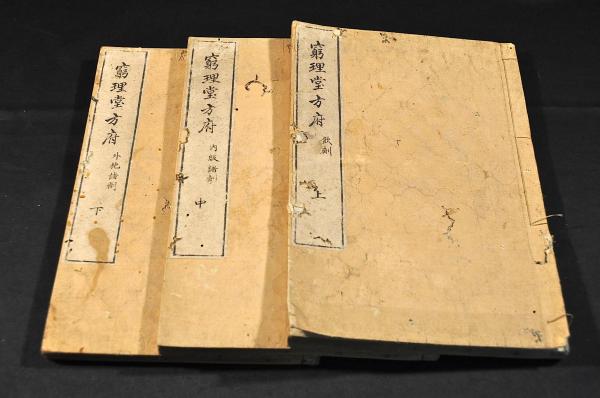 窮理堂方府
散劑
上
窮理堂方府
内服諸劑
中
窮理堂方府
外施諸劑
下